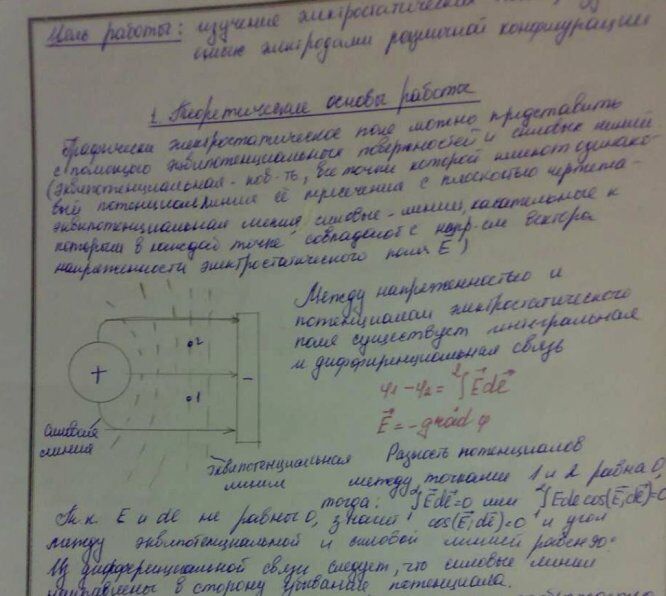 Цель работы: изучение электростатических
ёмых электродами различной конфигурации
1. Теоретические основы работы
Графически электростатическое поле можно представить
с помощью эквипотенциальных поверхностей и силовых линий
(эквипотенциальная - пов-ть, все точки которой имеют одинако-
вый потенциал линия её пересечения с плоскостью чертежа-
эквипотенциальная линия, силовые - линии, касательные к
которым в каждой точке совпадают с напр-ем вектора
напряженности электростатического поля E)
Между напряженностью и
потенциалом электростатического
поля существует интегральная
и дифференциальная связь
φ1 - φ2 = ₁∫² E⃗dℓ⃗
E⃗ = - grad φ
+
2
1
-
силовая
линия
эквипотенциальная
линия
Разность потенциалов
между точками 1 и 2 равна 0,
тогда: ₁∫² E⃗dℓ⃗=0 или ₁∫² Edℓ cos(E⃗,dℓ⃗)=0
Т.к. E и dℓ не равны 0, значит cos(E⃗,dℓ⃗)=0 и угол
между эквипотенциальной и силовой линией равен 90°
Из дифференциальной связи следует, что силовые линии
направлены в сторону убывания потенциала.